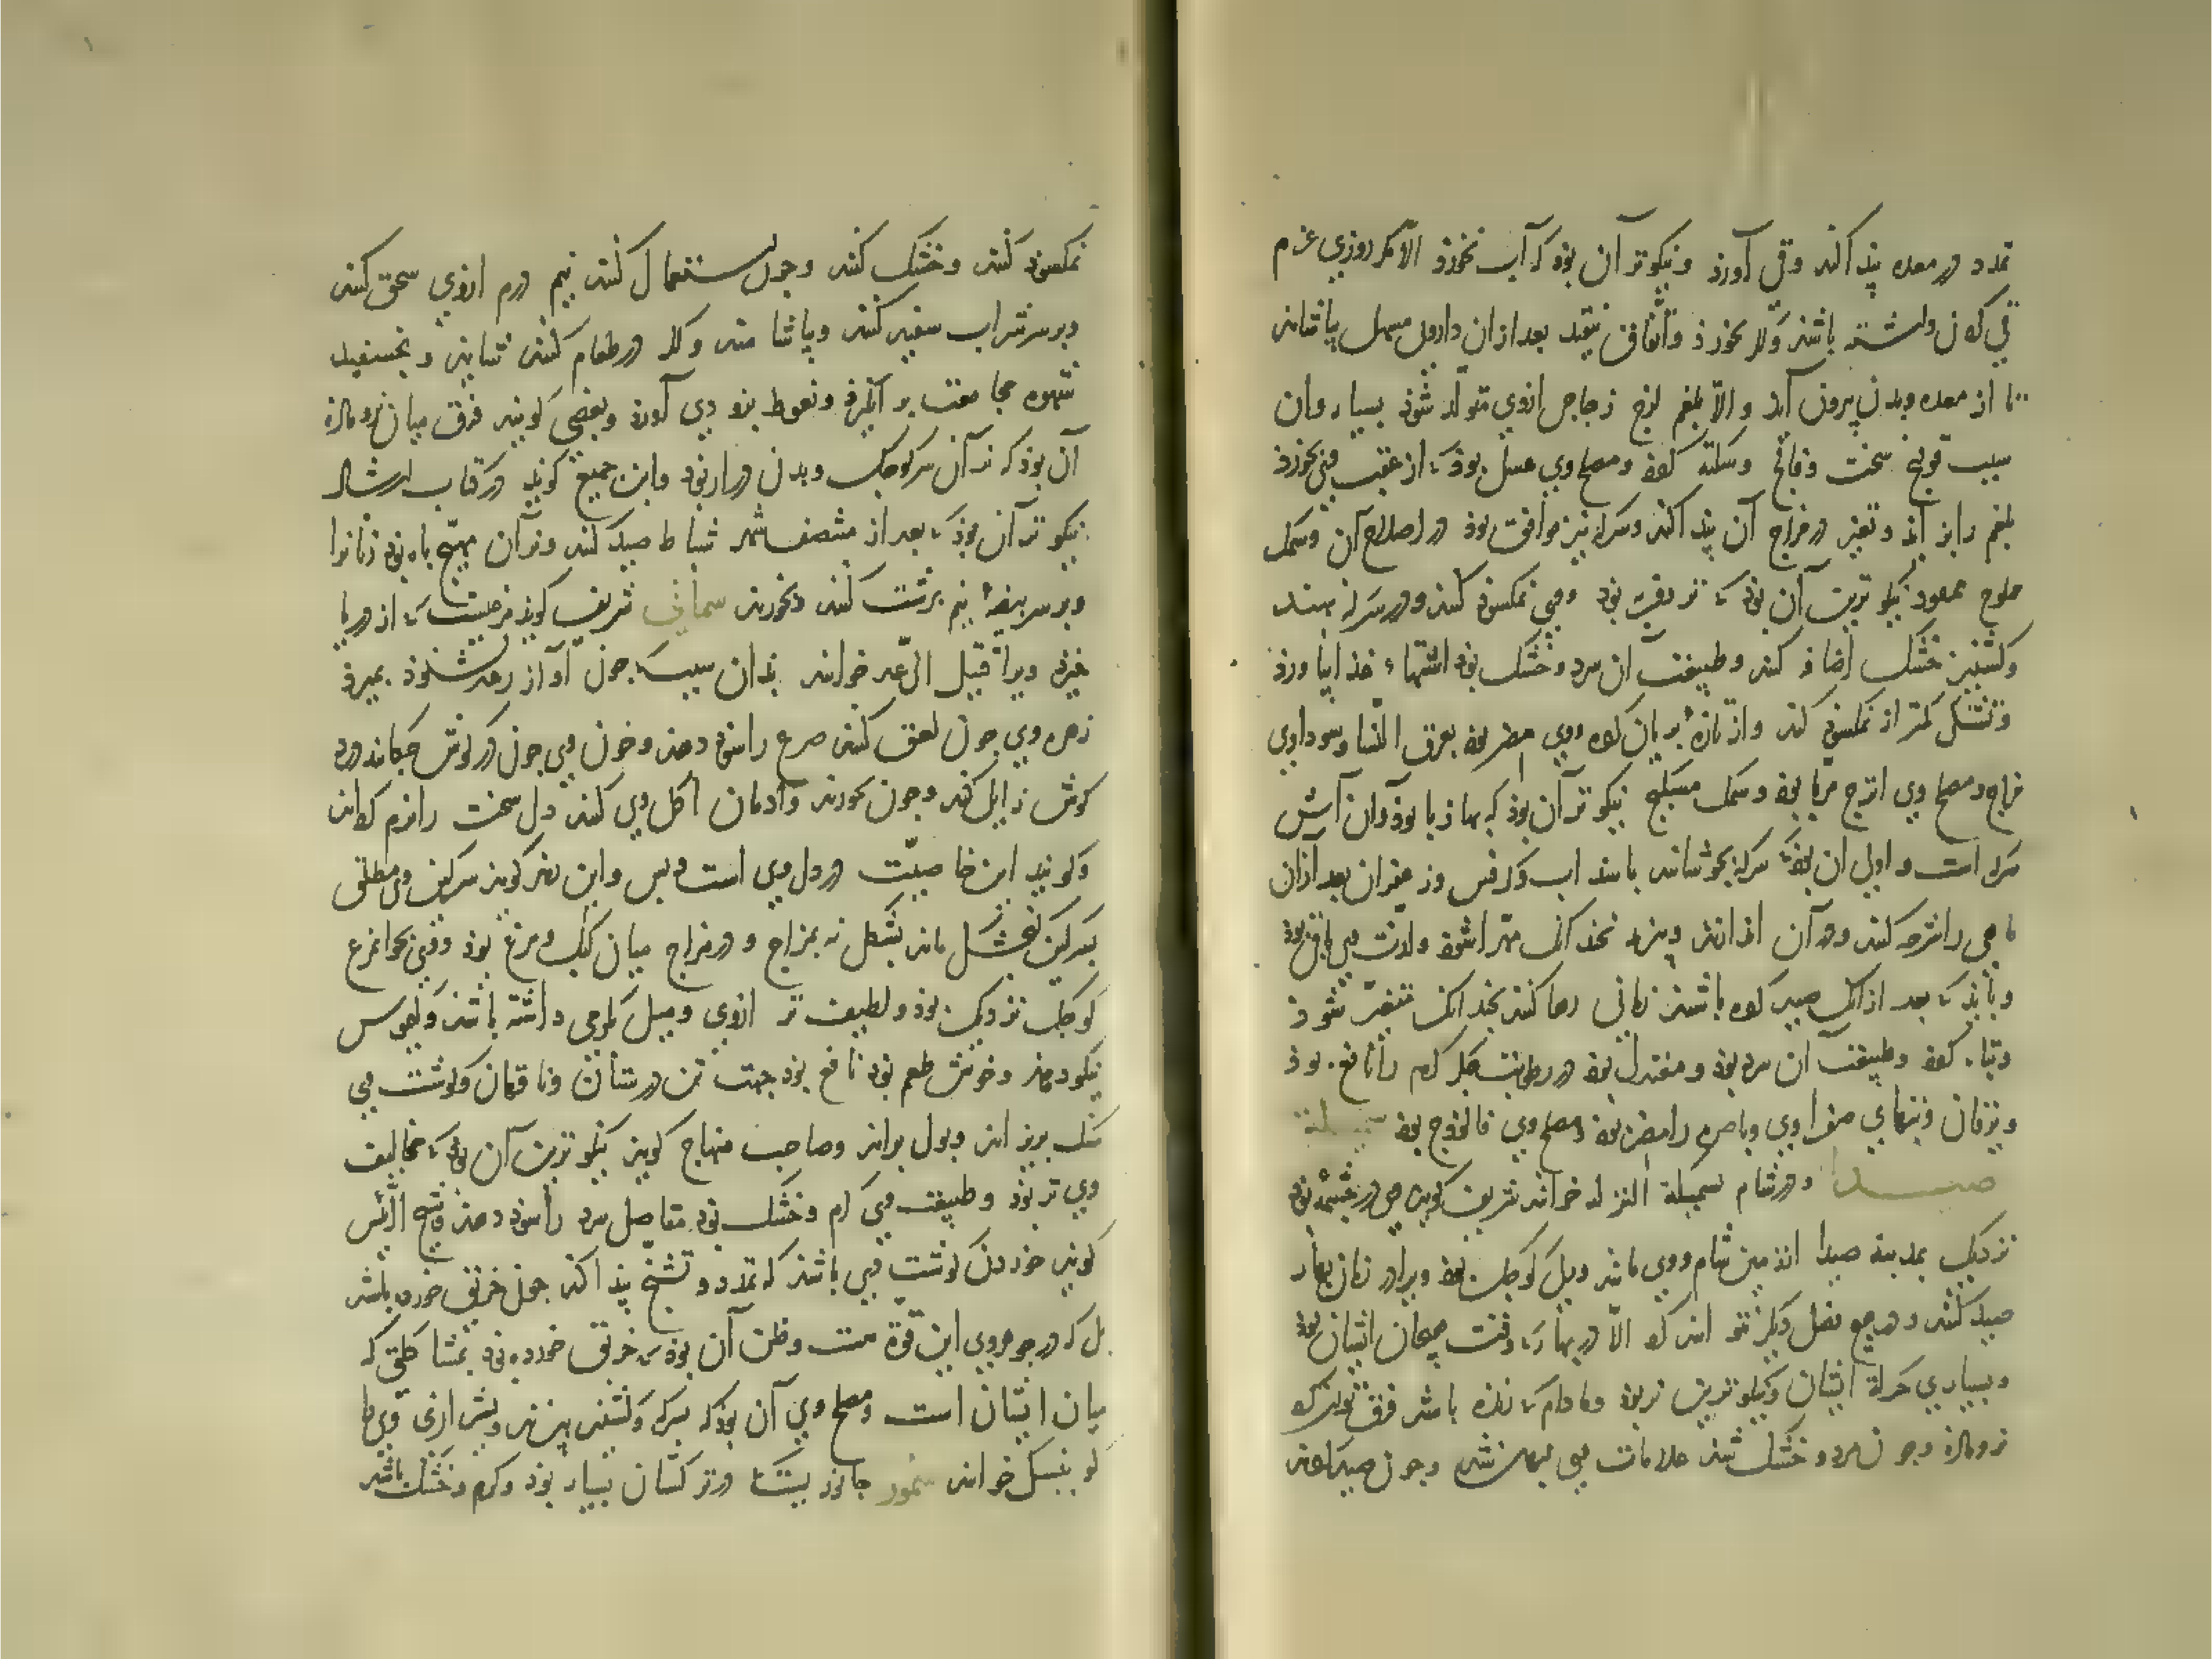 تمدد در معده پیدا کند وقی آورد ونیکوتر آن بود که آب نخورد الا مکر روزی عزم
قی کردن داشته باشد واکر بخورد واتفاق نیفتد بعد از ان داروی مسهل بیاشامند
تا از معده وبدن بیرون آید والا بلغم لزج زجاجی ازوی متولد شود بسیار وان
سبب قولنج سخت وفالج وسکته کردد ومصلح وی عسل بود که از عقب وی بخورد
بلغم را بزداید وتغیر در مزاج آن پیدا کند وسرکه نیز موافق بود در اصلاح آن وسمک
مملوح ممقور نیکوترین آن بود که نزدیک بود ومی نمکسود کنند ودر سرکه نهند
وکشنیز خشک اضافه کنند وطبیعت آن سرد وخشک بود اشتهاء غذا بیاورد
وتشنکی کمتر از نمکسود کند واز تازه بریان کرده ووی مضر بود بعرق النسا وسوداوی
مزاج ومصلح وی اترج مربا بود وسمک مسکبج نیکوتر آن بود که بهازبا بود وان آش
سرکه است واولی ان بود که سرکه بجوشانند با سداب وکرفس وزعفران بعد از ان
ماهی را شرحه کنند ودر آن اندازند وپزند بحدی که مهرا شود ولذت می یافته بود
وباید که بعد از انک صید کرده باشند زمانی رها کنند بحدی انک متغیر شود
وتباه کردد وطبیعت آن سرد بود ومعتدل بود در رطوبت جکر کرم را نافع بود
ویرقان وتبهای صفراوی وباصره را مضر بود ومصلح وی فالوذج بود سمیکه
صیدا ودر شام سمیکة النزله خوانند شریف کوید در چشمه بود
نزدیک بمدینه صیدا از زمین شام ووی مانند وبل کوجک بود ویرا در زمان بهار
صید کنند ودر هیچ فصل دیکر نتوانند کرد الا در بهار که وقت هیجان ایشان بود
وبسیاری حرکة ایشان ونیکوترین نر بود ومادام که تازه باشد فرق توان کرد
نر وماده وچون بمرد وخشک شد علامات پنهان شد وچون صید کنند
نمکسود کنند وخشک کنند وچون استعمال کنند نیم درم ازوی سحق کنند
وبر سر شراب سفید کنند وبیاشامند واکر در طعام کنند شاید وبخسفید
شهوه مجامعت بر انکیزد ونعوظ بدید آورد وبعضی کویند فرق میان نر وماده
آن بود که نر آن سر کوچک وبدن دراز بود وابن جمیع کوید در کتاب ارشاد
نیکوتر آن بود که بعد از منتصف شهر شباط صید کنند ونر آن مهیج باه بود زنانرا
وبر سر بیضهٔ نیم برشت کنند وبخورند سمانی شریف کوید مرغیست که از دریا
خیزد ویرا قتیل الرعد خوانند بدان سبب که چون آواز رعد شنود بمیرد
زهره وی چون لعق کنند صرع را سود دهد وخون وی چون در کوش چکانند درد
کوش زایل کند وچون بخورند وادمان اکل وی کنند دل سخت را نرم کرداند
وکویند این خاصیت در دل وی است وبس وابن زهر کوید سرکین وی مطلق
سرکین بنجشک ماند بشکل نه بمزاج ودر مزاج میان کبک ومرغ بود ووی بجوامرغ
کوچک نزدیک بود ولطیف تر ازوی ومیل بکرمی داشته باشد وکیموس
نیکو دهد وخوش طعم بود نافع بود جهت تن درستان وناقهان وکوشت وی
سنک بریزاند وبول براند وصاحب منهاج کوید نیکوترین آن بود که مخالیف
وی تر بود وطبیعت وی کرم وخشک بود مفاصل سرد را سود دهد وشیخ الرئیس
کوید خوردن کوشت وی باشد که تمدد وتشنج پیدا کند چون خربق خورده باشد
بل که در جوهر وی این قوة هست وظن آن بود که خربق خورده بود بمشاکلتی که
میان ایشان است ومصلح وی آن بود که بسرکه وکشنیز پزند وبشیرازی وی را
کو بنسک خوانند سمور جانوریست که در ترکستان بسیار بود وکرم وخشک باشد